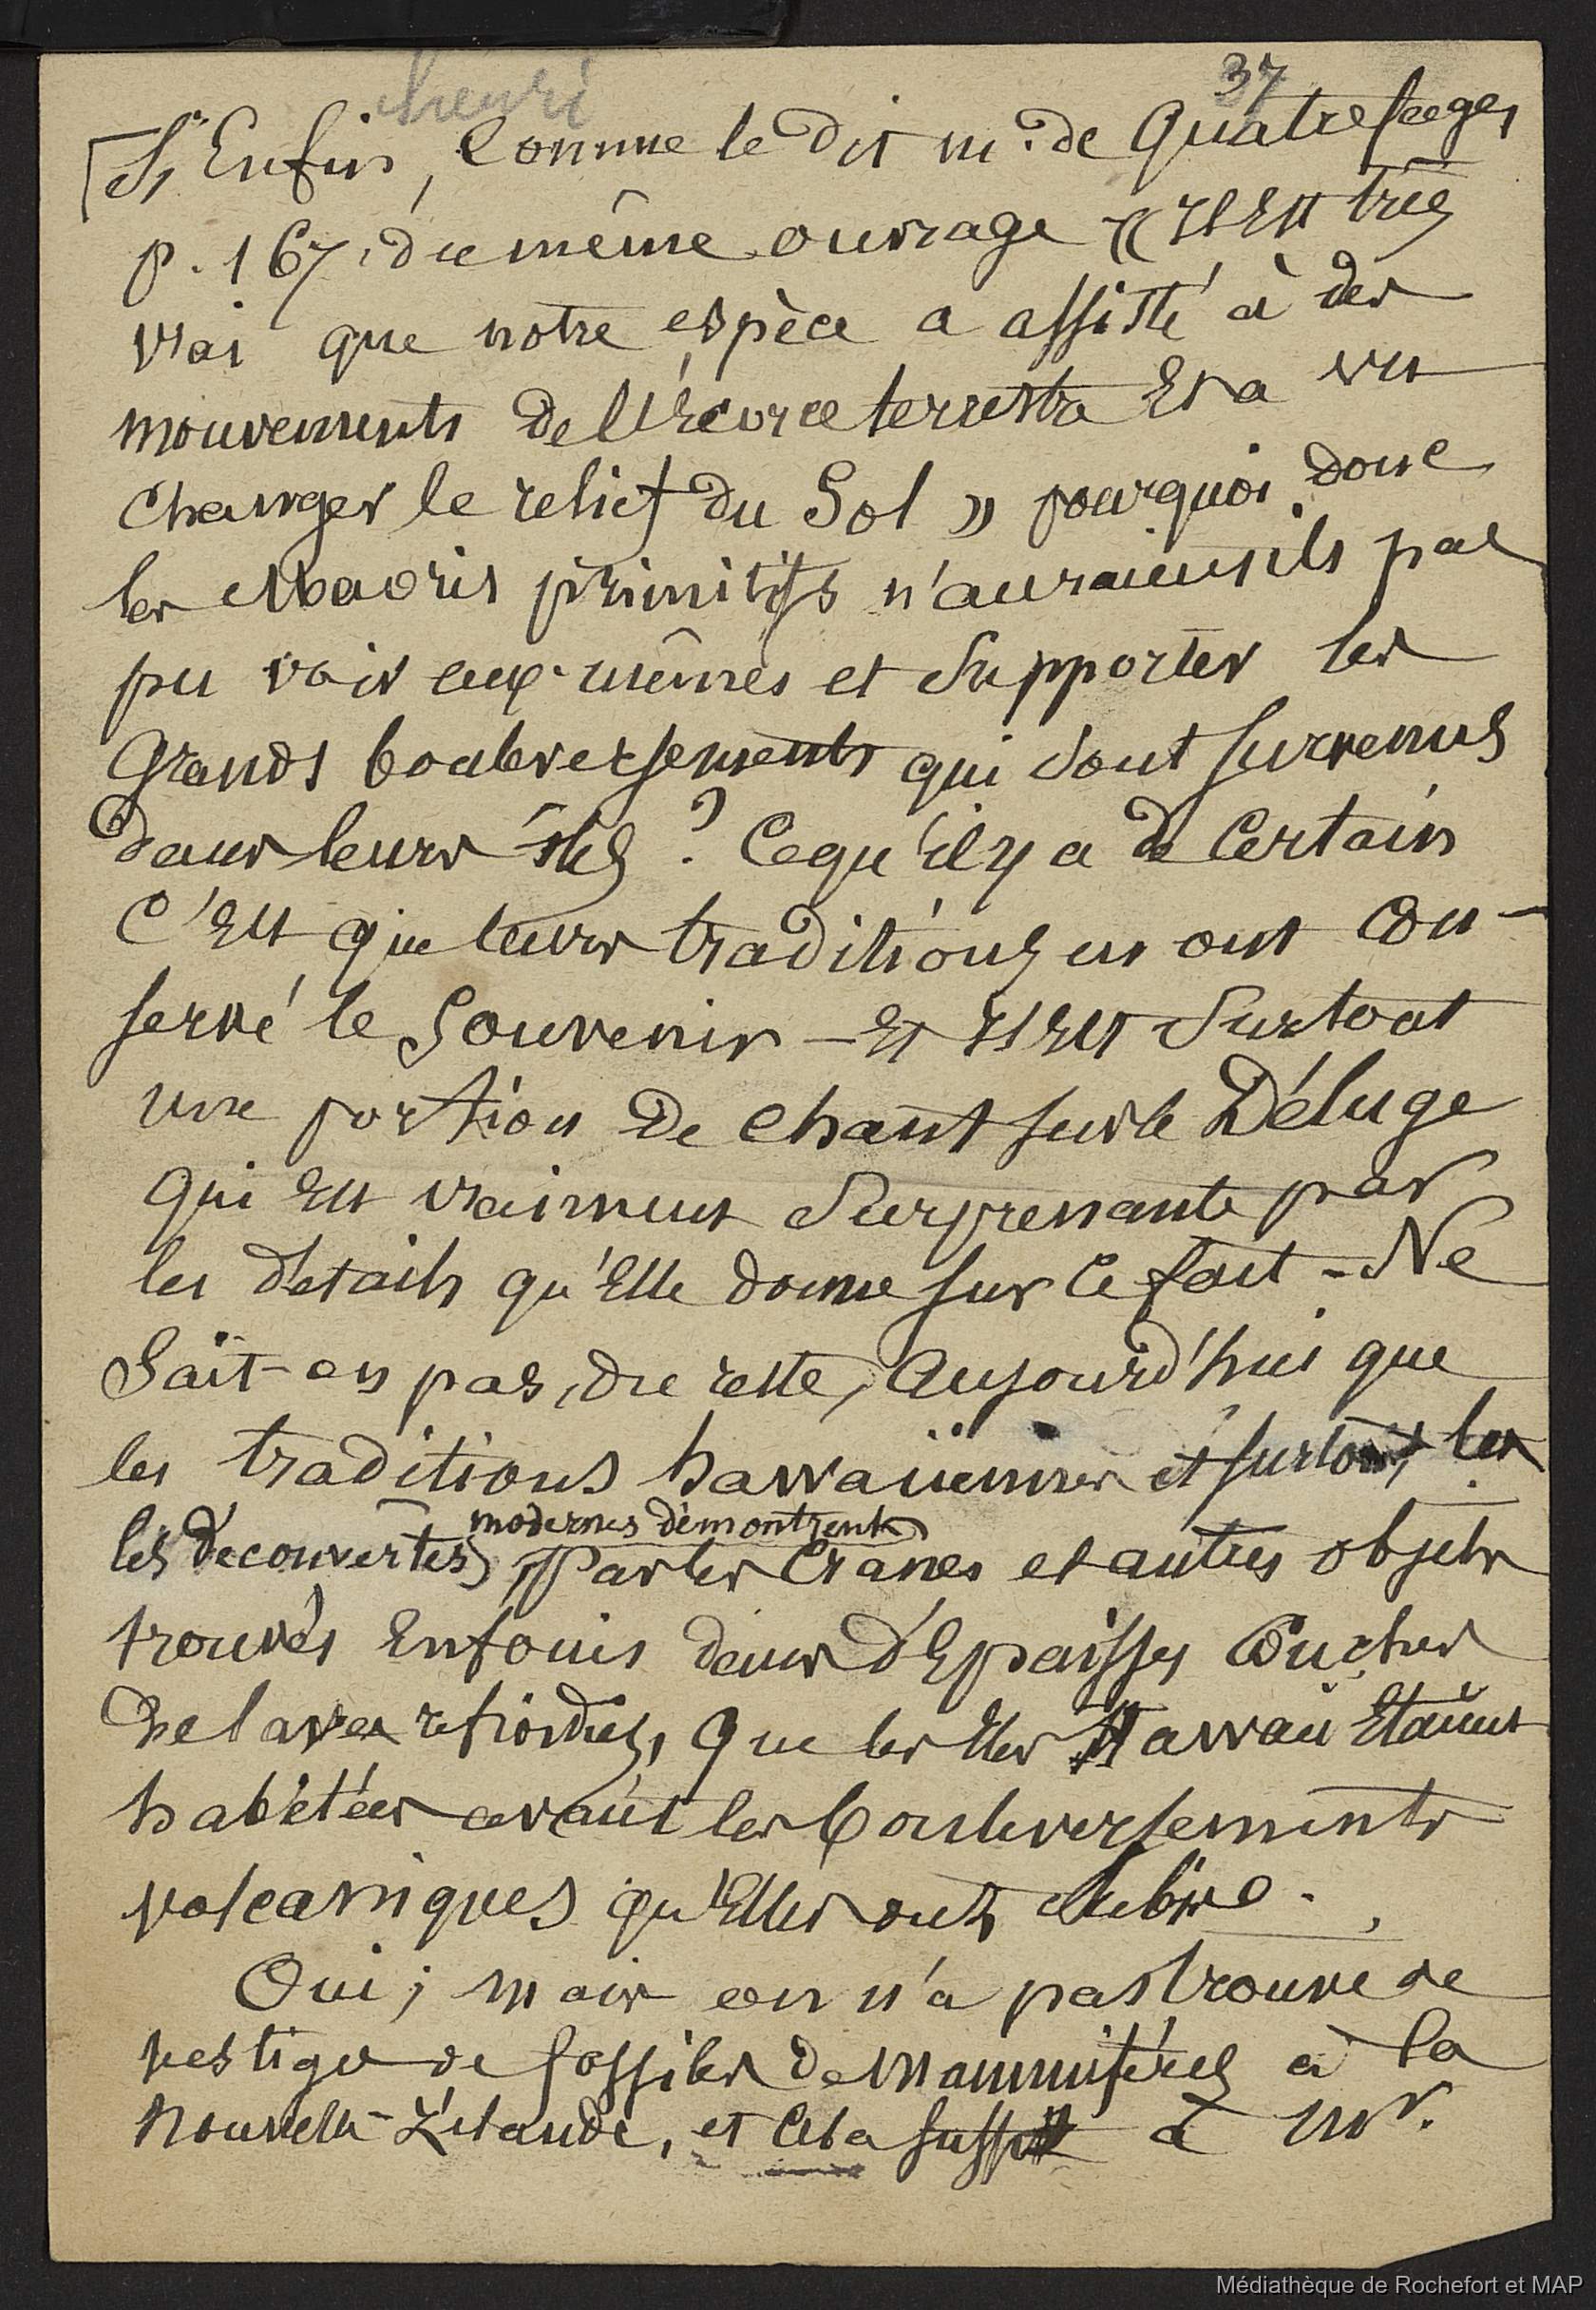 henri
37
Si Enfin, Comme le dit m. de Quatrefages
p. 167, du même ouvrage « Il Est très
vrai que notre espèce a assisté à des
mouvements de l'Ecorce terrestre Et a vu
changer le relief du Sol » pourquoi donc
les Maoris primitifs n'auraient ils pas
pu voir eux-mêmes et supporter les
Grands bouleversements qui sont survenus
dans leurs Iles ? Ce qu'il y a de Certain
C'Est que leurs traditions en ont con-
servé le Souvenir - Et Il Est Surtout
une portion de chant sur le Déluge
qui Est vraiment Surprenante par
les détails qu'Elle donne sur ce fait - Ne
Sait-on pas, du reste, Aujourd'hui que
les traditions hawaiiennes et surtout les
modernes démontrent
les découvertes, par les Crânes et autres objets
trouvés Enfouis dans d'Epaisses Couches
de laves refroidies, que les Iles Hawaii Etaient
habitées avant les bouleversements
volcaniques qu'Elles ont subis.
Oui ; mais on n'a pas trouvé de
vestiges de fossiles de mammifères à la
Nouvelle-Zélande, et Cela suffit à Mr.
Médiathèque de Rochefort et MAP